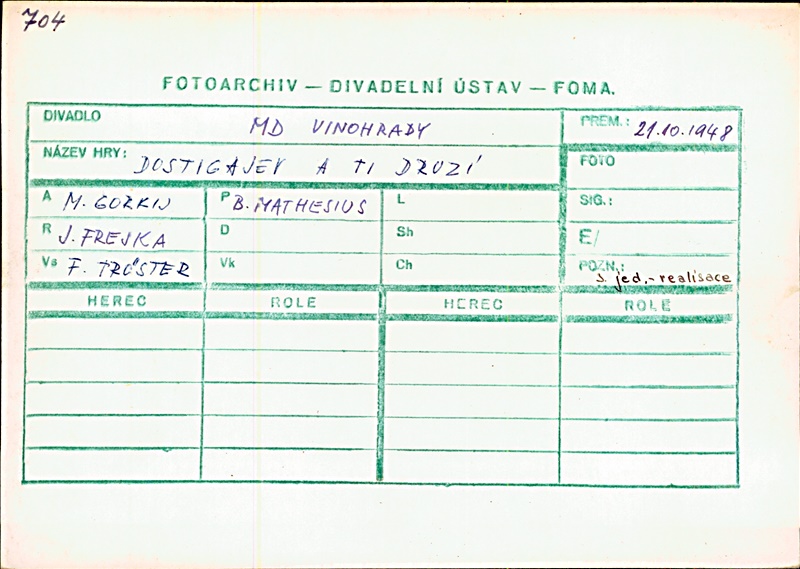 704
FOTOARCHIV — DIVADELNÍ ÚSTAV — FOMA.
DIVADLO MD VINOHRADY PREM.: 21.10.1948
NÁZEV HRY: DOSTIGAJEV A TI DRUZÍ FOTO
A M. GORKIJ P B. MATHESIUS L SIG.:
R J. FREJKA D Sh E/
Vs F. TRÖSTER Vk Ch POZN.: 3. jed.-realisace
HEREC ROLE HEREC ROLE